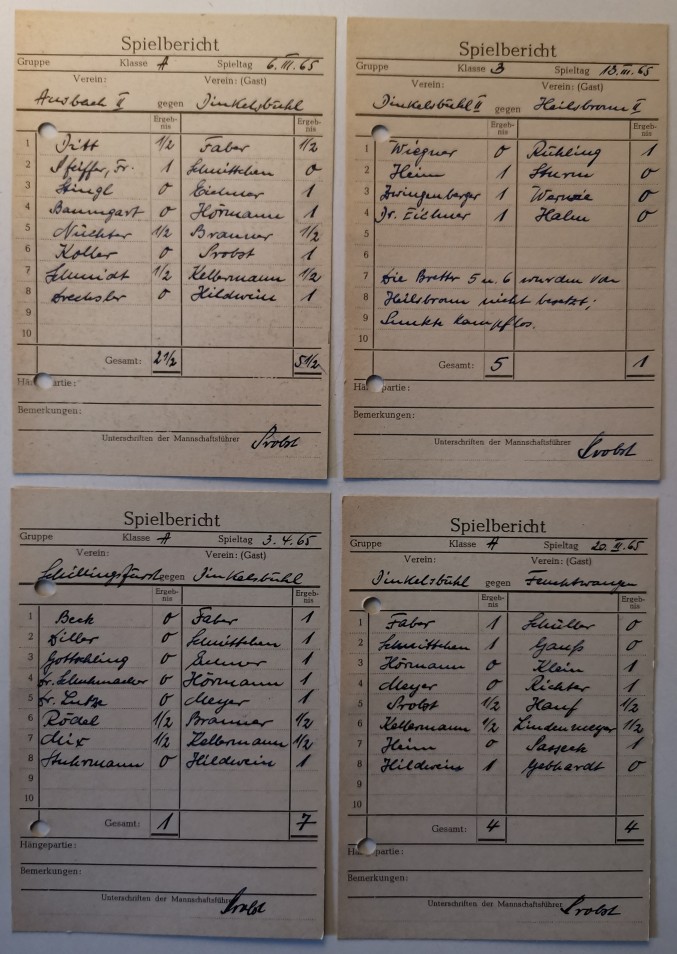 Spielbericht
Gruppe Klasse A Spieltag 6. III. 65
Verein: Verein: (Gast)
Ansbach II gegen Dinkelsbühl
Ergeb-nis Ergeb-nis
1 Ditt 1/2 Faber 1/2
2 Pfeiffer, Fr. 1 Schnittchen 0
3 Stingl 0 Eichner 1
4 Baumgart 0 Hörmann 1
5 Nüchter 1/2 Branner 1/2
6 Koller 0 Probst 1
7 Schmidt 1/2 Kellermann 1/2
8 Drechsler 0 Hildwein 1
9
10
Gesamt: 2 1/2 5 1/2
Hängepartie:
Bemerkungen:
Unterschriften der Mannschaftsführer Probst
Spielbericht
Gruppe Klasse 3 Spieltag 13. III. 65
Verein: Verein: (Gast)
Dinkelsbühl II gegen Heilsbronn II
Ergeb-nis Ergeb-nis
1 Wiegner 0 Rühling 1
2 Heim 1 Sturm 0
3 Zwingenberger 1 0
4 Dr. Eichner 1 Halm 0
5
6
7 Die Bretter 5 u. 6 wurden von
8 Heilsbronn nicht besetzt;
9 Punkte kampflos.
10
Gesamt: 5 1
Hängepartie:
Bemerkungen:
Unterschriften der Mannschaftsführer Probst
Spielbericht
Gruppe Klasse A Spieltag 3. 4. 65
Verein: Verein: (Gast)
Schillingsfürst gegen Dinkelsbühl
Ergeb-nis Ergeb-nis
1 Beck 0 Faber 1
2 Diller 0 Schnittchen 1
3 Gottschling 0 Eichner 1
4 Fr. Schuhmacher 0 Hörmann 1
5 Fr. Lutze 0 Meyer 1
6 Rödel 1/2 Branner 1/2
7 Mix 1/2 Kellermann 1/2
8 Stuhrmann 0 Hildwein 1
9
10
Gesamt: 1 7
Hängepartie:
Bemerkungen:
Unterschriften der Mannschaftsführer Probst
Spielbericht
Gruppe Klasse A Spieltag 20. II. 65
Verein: Verein: (Gast)
Dinkelsbühl gegen Feuchtwangen
Ergeb-nis Ergeb-nis
1 Faber 1 Schüller 0
2 Schnittchen 1 Gauß 0
3 Hörmann 0 Klein 1
4 Meyer 0 Richter 1
5 Probst 1/2 Hauf 1/2
6 Kellermann 1/2 Lindenmeyer 1/2
7 Heim 0 Sasseck 1
8 Hildwein 1 Gebhardt 0
9
10
Gesamt: 4 4
Hängepartie:
Bemerkungen:
Unterschriften der Mannschaftsführer Probst